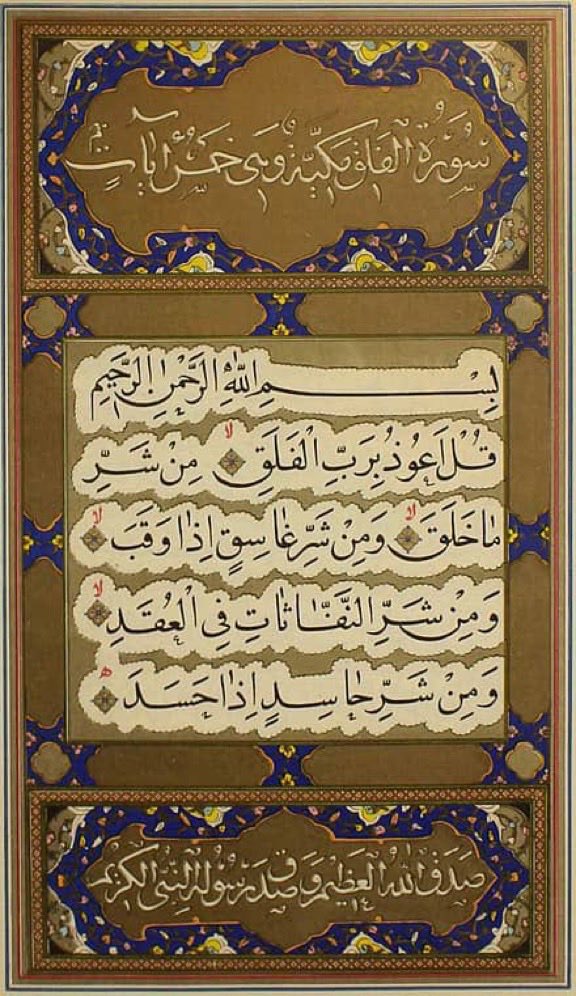 سُورَةُ الْفَلَقِ مَكِّيَّةٌ وَهِيَ خَمْسُ اٰيَاتٍ
بِسْمِ اللّٰهِ الرَّحْمٰنِ الرَّحِيمِ
قُلْ اَعُوذُ بِرَبِّ الْفَلَقِ ۙ مِنْ شَرِّ
مَا خَلَقَ ۙ وَمِنْ شَرِّ غَاسِقٍ اِذَا وَقَبَ ۙ
وَمِنْ شَرِّ النَّفَّاثَاتِ فِي الْعُقَدِ ۙ
وَمِنْ شَرِّ حَاسِدٍ اِذَا حَسَدَ
صَدَقَ اللّٰهُ الْعَظِيمُ وَصَدَقَ رَسُولُهُ النَّبِيُّ الْكَرِيمُ